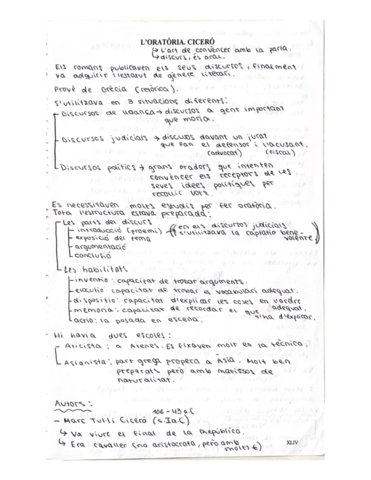 L'ORATÒRIA. CICERÓ
↳ L'art de convèncer amb la parla.
↳ discurs, és oral.
Els romans publicaven els seus discursos, finalment
va adquirir l'estatut de gènere literari.
Prové de Grècia (retòrica).
S'utilitzava en 3 situacions diferents:
Discursos de lloança → discursos a gent important
que moria.
Discursos judicials → discursos davant un jurat
que fan el defensor i l'acusant.
(advocat) (fiscal)
Discursos polítics → grans oradors que intenten
convèncer els receptors de les
seves idees polítiques per
recollir vots.
Es necessitaven molts estudis per fer oratòria.
Tota l'estructura estava preparada:
Les parts del discurs
- introducció (proemi) → (en els discursos judicials
s'utilitzava la captatio bene-
volentiae)
- exposició del tema
- argumentació
- conclusió
Les habilitats
- inventio: capacitat de trobar arguments.
- elocutio: capacitat de trobar el vocabulari adequat.
- dispositio: capacitat d'explicar les coses en l'ordre
adequat.
- memoria: capacitat de recordar el que
s'ha d'explicar.
- actio: la posada en escena.
Hi havia dues escoles:
Aticista: a Atenes. Es fixaven molt en la tècnica.
Asianista: part grega propera a Àsia. Molt ben
preparats però amb matissos de
naturalitat.
Autors:
106 - 43 a.C
- Marc Tul·li Ciceró (s. I a.C)
↳ Va viure el final de la República.
↳ Era cavaller (no aristòcrata, però amb
molts €)
XLIV